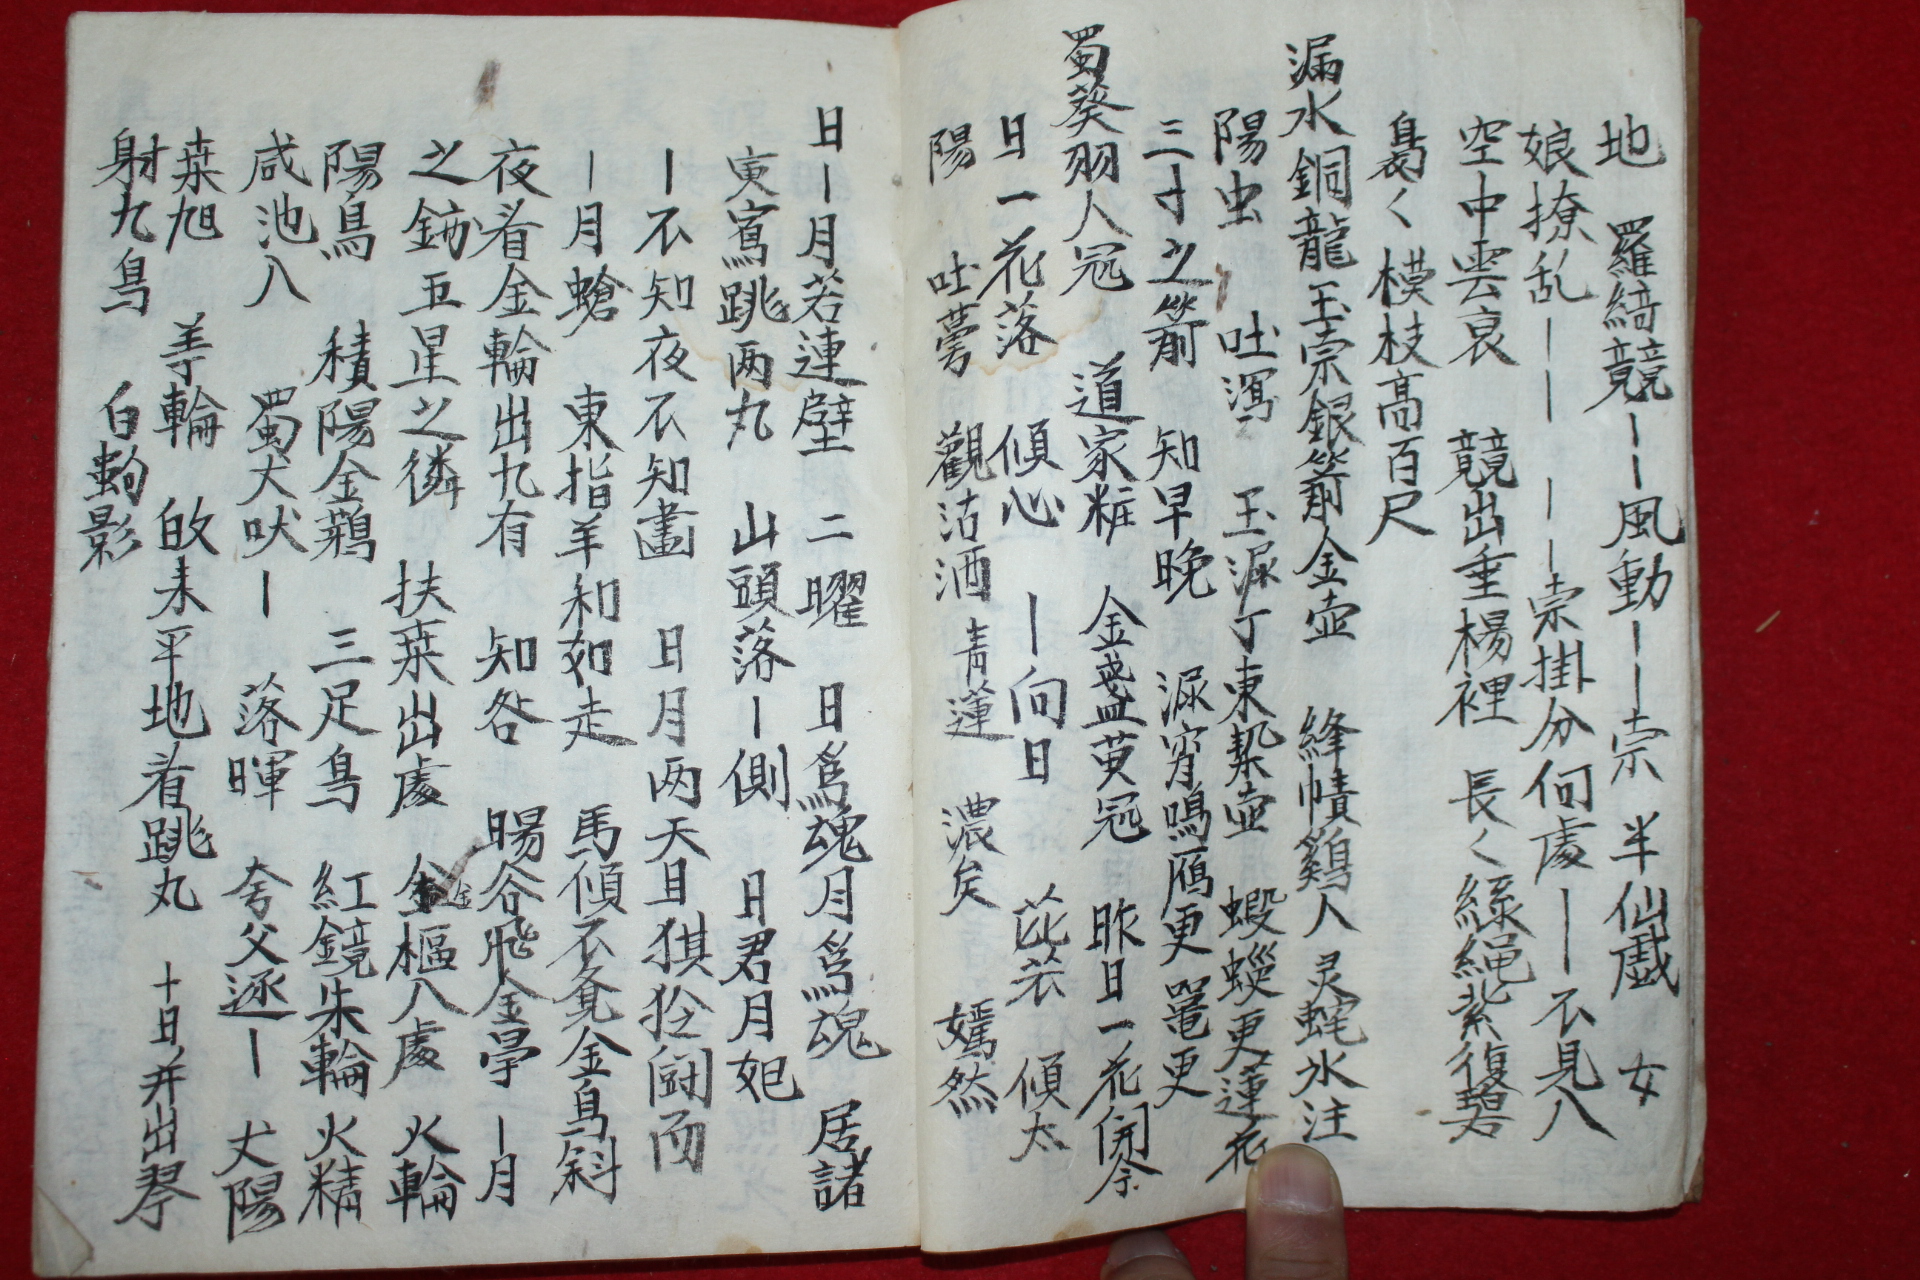 地 羅綺競ㅣㅣ風動ㅣㅣ崇 半仙戱 女
娘撩乱ㅣㅣ ㅣㅣ崇掛分何處ㅣㅣ不見人
空中雲裏 競出垂楊裡 長〱綵繩紫復碧
裊〱模枝高百尺
漏水 銅龍玉宗銀箭金壺 絳幘鷄人 灵蛇水注
陽虫 吐瀉 玉漏丁東 壺 蝦蟆更蓮花
三寸之箭 知早晩 漏 鳴鴈更 鼉更
蜀葵羽人冠 道家粧 金盞黃冠 昨日一花開今
日一花落 傾心 ㅣ向日 花衣 傾太
陽 吐蕚 觀沽洒 靑蓮 濃矣 嫣然
日ㅣ月若連璧 二曜 日爲魂月爲魂 居諸
寅賔跳两丸 山頭落ㅣ側 日君月妃
ㅣ不知夜不知晝 日月两天目 闘而
ㅣ月蟾 東指羊和如走 馬傾不覓金烏斜
夜看金輪出九有 知咎 暘谷飛金暈 ㅣ月
之鈎五星之 扶桒出處 金樞入處 火輪
陽烏 積陽金鴉 三足烏 紅鏡朱輪 火精
咸池入 蜀犬吠ㅣ 落暉 夸父逐ㅣ 丈陽
桒旭 羊輪 的未平地看跳丸 十日并出琴
射九烏 白駒影